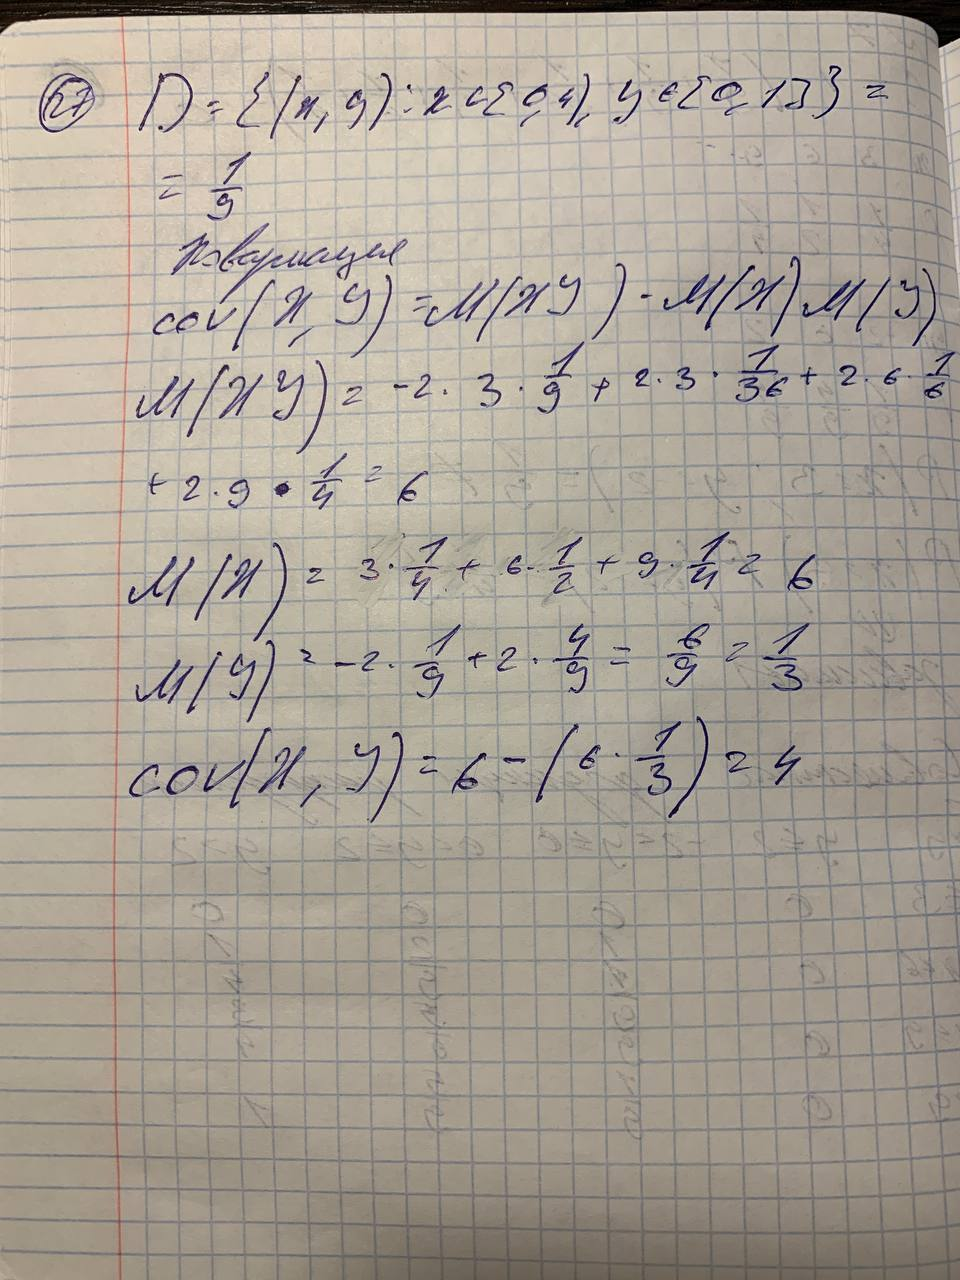 27 D = {(x, y) : x ∈ [0,4), y ∈ [0,13]} =
= 1/9
Ковариация
cov(X, Y) = M(XY) - M(X) M(Y)
M(XY) = -2 · 3 · 1/9 + 2 · 3 · 1/36 + 2 · 6 · 1/6
+ 2 · 9 · 1/4 = 6
M(X) = 3 · 1/4 + 6 · 1/2 + 9 · 1/4 = 6
M(Y) = -2 · 1/9 + 2 · 4/9 = 6/9 = 1/3
cov(X, Y) = 6 - (6 · 1/3) = 4